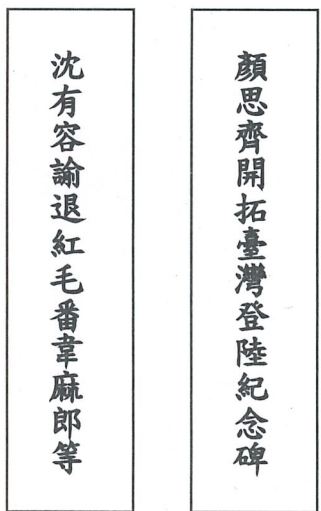 顏思齊開拓臺灣登陸紀念碑
沈有容諭退紅毛番韋麻郎等